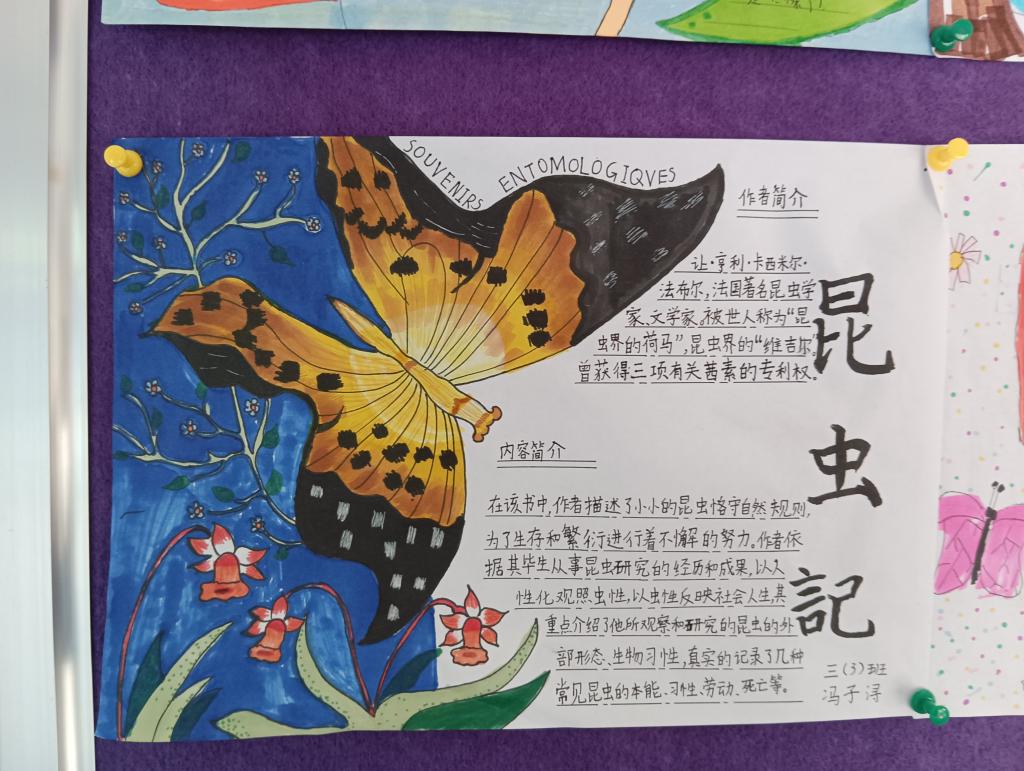 SOUVENIRS ENTOMOLOGIQVES
作者简介
让·亨利·卡西米尔·
法布尔,法国著名昆虫学
家、文学家。被世人称为“昆
虫界的荷马”,昆虫界的“维吉尔”
曾获得三项有关茜素的专利权。
昆
虫
記
内容简介
在该书中,作者描述了小小的昆虫恪守自然规则,
为了生存和繁衍进行着不懈的努力。作者依
据其毕生从事昆虫研究的经历和成果,以人
性化观照虫性,以虫性反映社会人生,其
重点介绍了他所观察和研究的昆虫的外
部形态、生物习性,真实的记录了几种
常见昆虫的本能、习性、劳动、死亡等。
三(3)班
冯子浔